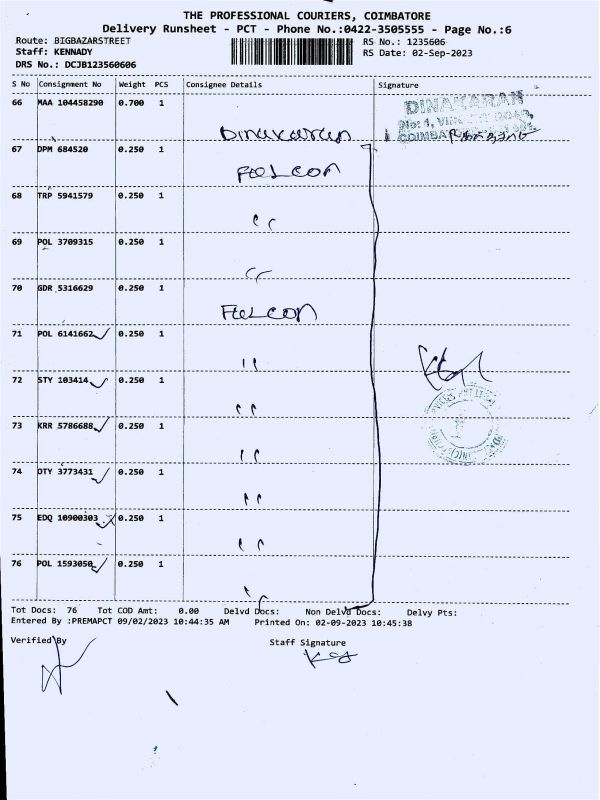 THE PROFESSIONAL COURIERS, COIMBATORE
Delivery Runsheet - PCT - Phone No.:0422-3505555 - Page No.:6
Route: BIGBAZARSTREET RS No.: 1235606
Staff: KENNADY RS Date: 02-Sep-2023
DRS No.: DCJB123560606
S No Consignment No Weight PCS Consignee Details Signature
66 MAA 104458290 0.700 1
DINAKARAN
No: 4,
COIMBATORE
Dinakaran
67 DPM 684520 0.250 1
FALCON
68 TRP 5941579 0.250 1
"
69 POL 3709315 0.250 1
"
70 GDR 5316629 0.250 1
FALCON
71 POL 6141662 ✓ 0.250 1
"
72 STY 103414 ✓ 0.250 1
"
73 KRR 5786688 ✓ 0.250 1
"
74 OTY 3773431 ✓ 0.250 1
"
75 EDQ 10900303 ✓ 0.250 1
"
76 POL 1593050 ✓ 0.250 1
"
Tot Docs: 76 Tot COD Amt: 0.00 Delvd Docs: Non Delvd Docs: Delvy Pts:
Entered By :PREMAPCT 09/02/2023 10:44:35 AM Printed On: 02-09-2023 10:45:38
Verified By Staff Signature